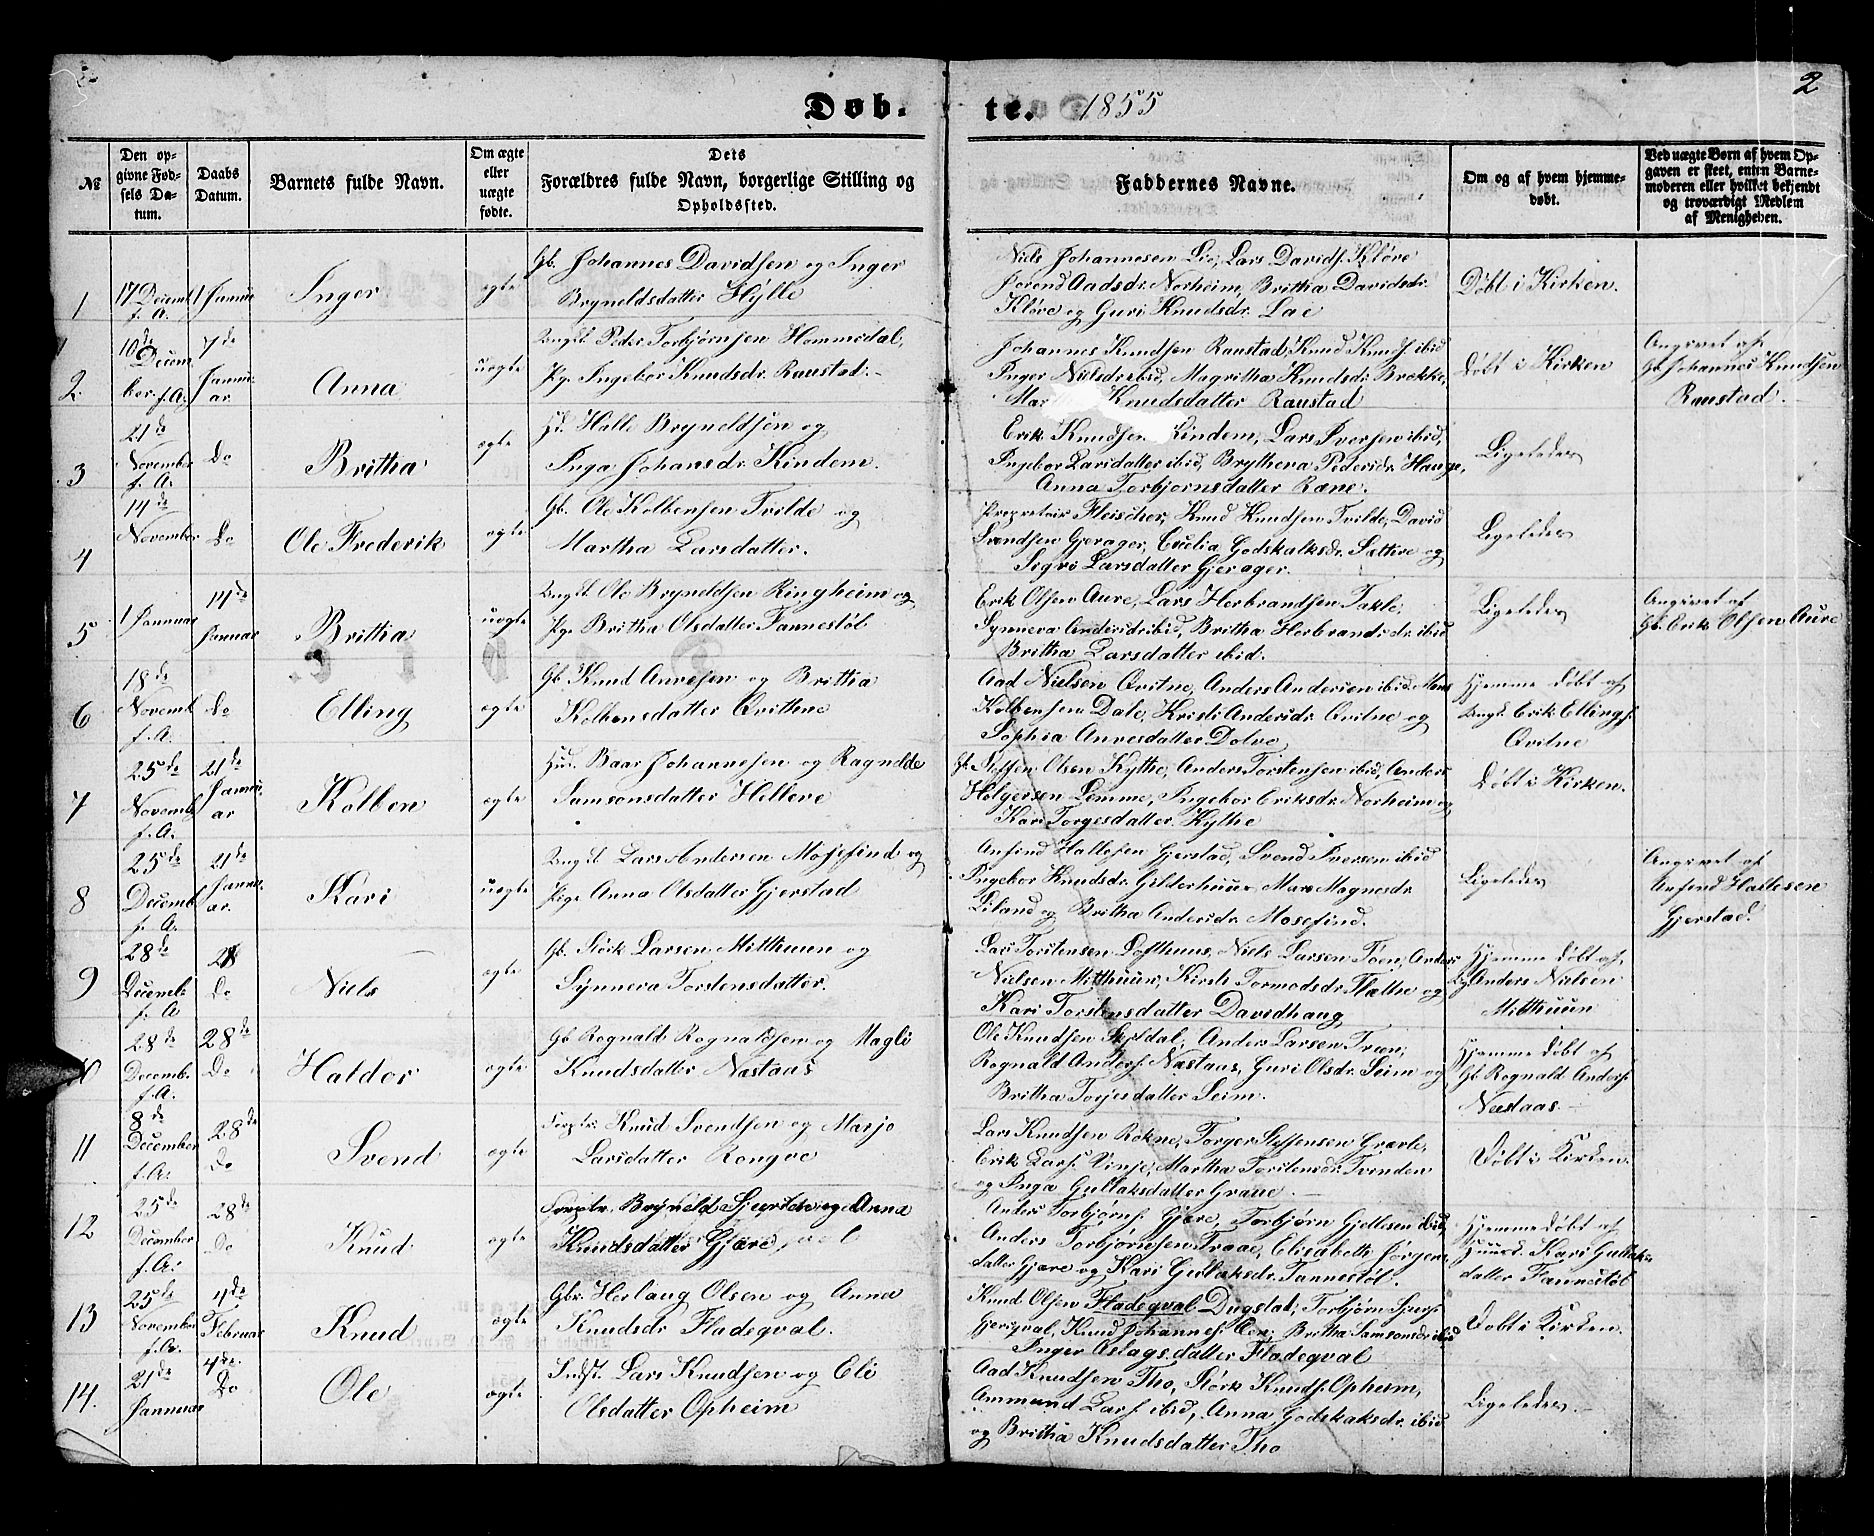 2
Døb- te. 1855
№
Den op-
givne Fød-
sels Da-
tum.
Daabs
Datum.
Barnets fulde Navn.
Om ægte
eller
uægte
fødte.
Dets
Forældres fulde Navn, borgerlige Stilling og
Opholdssted.
Faddernes Navne.
Om og af hvem hjemme-
døbt.
Ved uægte Børn af hvem Op-
gaven er skeet, enten Barne-
moderen eller hvilket bekjendt
og troværdigt Medlem
af Menigheden.
1
17 Decemb.
f. A.
1 Januar
Inger
ægte
Gb. Johannes Davidsen og Inger
Bryneldsdatter Hylle
Niels Johannesen Lie, Lars Davids. Kløve
Aadsdr. Norheim, Brittha Davidsdr.
Kløve og Guri Knudsdr. Lie
Døbt i Kirken.
2.
10de
Decem
ber f.A.
7de
Janu-
ar
Anna
uægte
Ungk. Peder Torbjørnsen Hommedal,
Pge Ingebor Knudsdr. Raustad.
Johannes Knudsen Raustad, Knud Knuds. ibid
Inger Nielsdr ibid, Magritha Knudsdr. Brekke,
Mar Knudsdatter Raustad
Døbt i Kirken
Angivet af
Gb. Johannes Knudsen
Raustad.
3
21de
November
f. A.
Do
Brittha
ægte
Halle Bryneldsen og
Inga Johansdr. Kindem.
Erik Knudsen Kindem, Lars Iversen ibid,
Ingebor Larsdatter ibid, Brytheva Pedersdr. Hauge,
Anna Torbjornsdatter Rene.
Ligeledes
4
14de
November
Do
Ole Frederik
ægte
Gb. Ole Kolbensen Tvilde og
Martha Larsdatter.
Propretair Fleischer, Knud Knudsen Tvilde, David
Svendsen Gjerager, Cecelia Godskalksdr. Sættre og
Segri Larsdatter Gjerager.
Ligeledes
5
1 Januar
14de
Januar
Brittha
uægte
Ungk. Ole Bryneldsen Ringheim og
Pge Britha Olsdatter Fannestøl
Erik Olsen Aure, Lars Herbrandsen Takle,
Synneva Andersdr ibid, Britha Herbrandsdr. ibid
Britha Larsdatter ibid.
Ligeledes
Angivet af
Gb. Erik Olsen Aure
6
18de
Novemb.
f. A.
Do
Elling
ægte
Gb. Knud Anvesen og Brittha
Kolbensdatter Qvithne
Aad Nielsen Qvitne, Anders Andersen ibid, Mons
Kolbensen Dale, Kristi Andersdr. Qvitne og
Sophia Anvesdatter Dolve
Hjemme døbt af
Ungk. Erik Ellings.
Qvitne
7
25de
Novemb
f. A.
21de
Janu-
ar
Kolben
ægte
Hus. Baar Johannesen og Ragnilde
Samsonsdatter Hilleve
Gb. Steffen Olsen Kythe, Anders Torstensen ibid, Anders
Holgersen Lemme, Ingebor Eriksdr. Norheim og
Kari Torgesdatter Kythe
Døbt i Kirken.
8
25de
Decemb
f. A.
21de
Janu-
ar.
Kari
uægte
Ungk. Lars Andersen Mosefind og
Pige Anna Olsdatter Gjerstad
Anfind Hallesen Gjerstad, Svend Iversen ibid
Ingebor Knudsdr. Gilderhuus, Mari Magnesdr.
Liland og Britha Andersdr. Mosefind.
Ligeledes
Angivet af
Anfind Hallesen
Gjerstad.
9
28de
Decemb.
f. A
21
Do
Niels
ægte
Gb. Störk Larsen Mitthuun og
Synneva Torstensdatter.
Lars Torstensen Lofthuus, Niels Larsen Tøen, Anders
Nielsen Mitthuun, Kirsti Tormodsdr. Flathe og
Kari Torstensdatter Davidhaug
Hjemme døbt af
Anders Nielsen
Mitthuun
10
28de
Decemb.
f. A.
28de
Do
Haldor
ægte
Gb Rognald Rognaldsen og Magli
Knudsdatter Næstaas
Ole Knudsen, Anders Larsen Træen,
Rognald Anders. Næstaas, Guri Olsdr. Seim og
Britha Torjesdatter Seim.
Hjemme døbt af
Gb Rognald Anders.
Næstaas.
11
8de
December
f. A.
28de
Do
Svend
ægte
Knud Svendsen og Marjo
Larsdatter Rongve
Lars Knudsen Rokne, Torger Steffensen Grævle,
Erik Lars. Vinje, Martha Torstensdr. Tvinden
og Inga Gullaksdatter Graue.
Døbt i Kirken.
12
25de
December
f. A.
28de
Do
Knud
ægte
Bryneld Sjursen og Anna
Knudsdatter Gjære
Anders Torbjørns. Gjære, Torbjørn Gjellesen ibid,
Anders Torbjørnsen Traae, Elisabeth Jørgens-
datter Gjære og Kari Gullaksdr. Tannestøl.
Hjemme døbt af
Kari Gullaks-
datter Fannestøl
13
25de
November
f. A.
4de
Februar
Knud
ægte
Gbr. Herlaug Olsen og Anna
Knudsdr Fladeqval.
Knud Olsen Fladeqval Dugstad, Torbjørn Sjurs.
Gjerqval, Knud Johannes. Øen, Britha Samsonsdr ibid
Inger Aslagsdatter Fladeqval
Døbt i Kirken.
14.
21de
Januar
4de.
Do
Ole
ægte
Indst. Lars Knudsen og Eli
Olsdatter Opheim
Aad Knudsen Tho, Störk Knuds. Opheim,
Ammund Lars. ibid, Anna Godskaksdr. ibid
og Britha Knudsdatter Tho
Ligeledes.